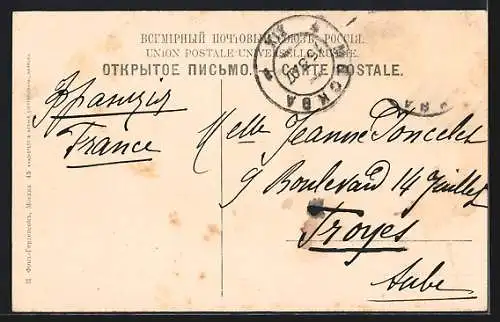 ВСЕМІРНЫЙ ПОЧТОВЫЙ СОЮЗЪ. РОССІЯ.
UNION POSTALE UNIVERSELLE. RUSSIE.
ОТКРЫТОЕ ПИСЬМО. — CARTE POSTALE.
МОСКВА
Франція
France
Melle Jeanne Poncelet
9 Boulevard 14 Juillet
Troyes
Aube
Москва